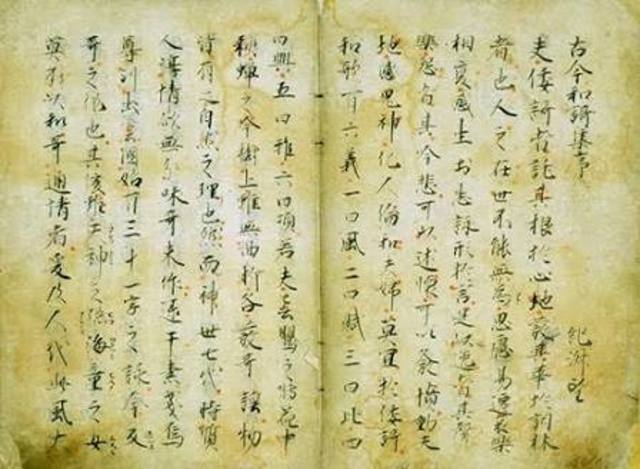 古今和謌集序
紀淑望
夫倭謌者託其根於心地發其華於詞林
者也人之在世不能無為思慮易遷哀樂
相変感生於志詠形於言是以逸者其聲
樂怨者其吟悲可以述懐可以發憤動天
地感鬼神化人倫和夫婦莫宜於倭謌
和歌有六義一曰風二曰賦三曰比四
曰興五曰雅六曰頌若夫春鶯之囀花中
秋蝉之吟樹上雖無曲折各發哥謡物
皆有之自然之理也然而神世七代時質
人淳情欲無分哥未作逮于素戔烏
尊到出雲國始有三十一字之詠今反
哥之作也其後雖天神之孫海童之女
莫不以和哥通情者爰及人代此風大